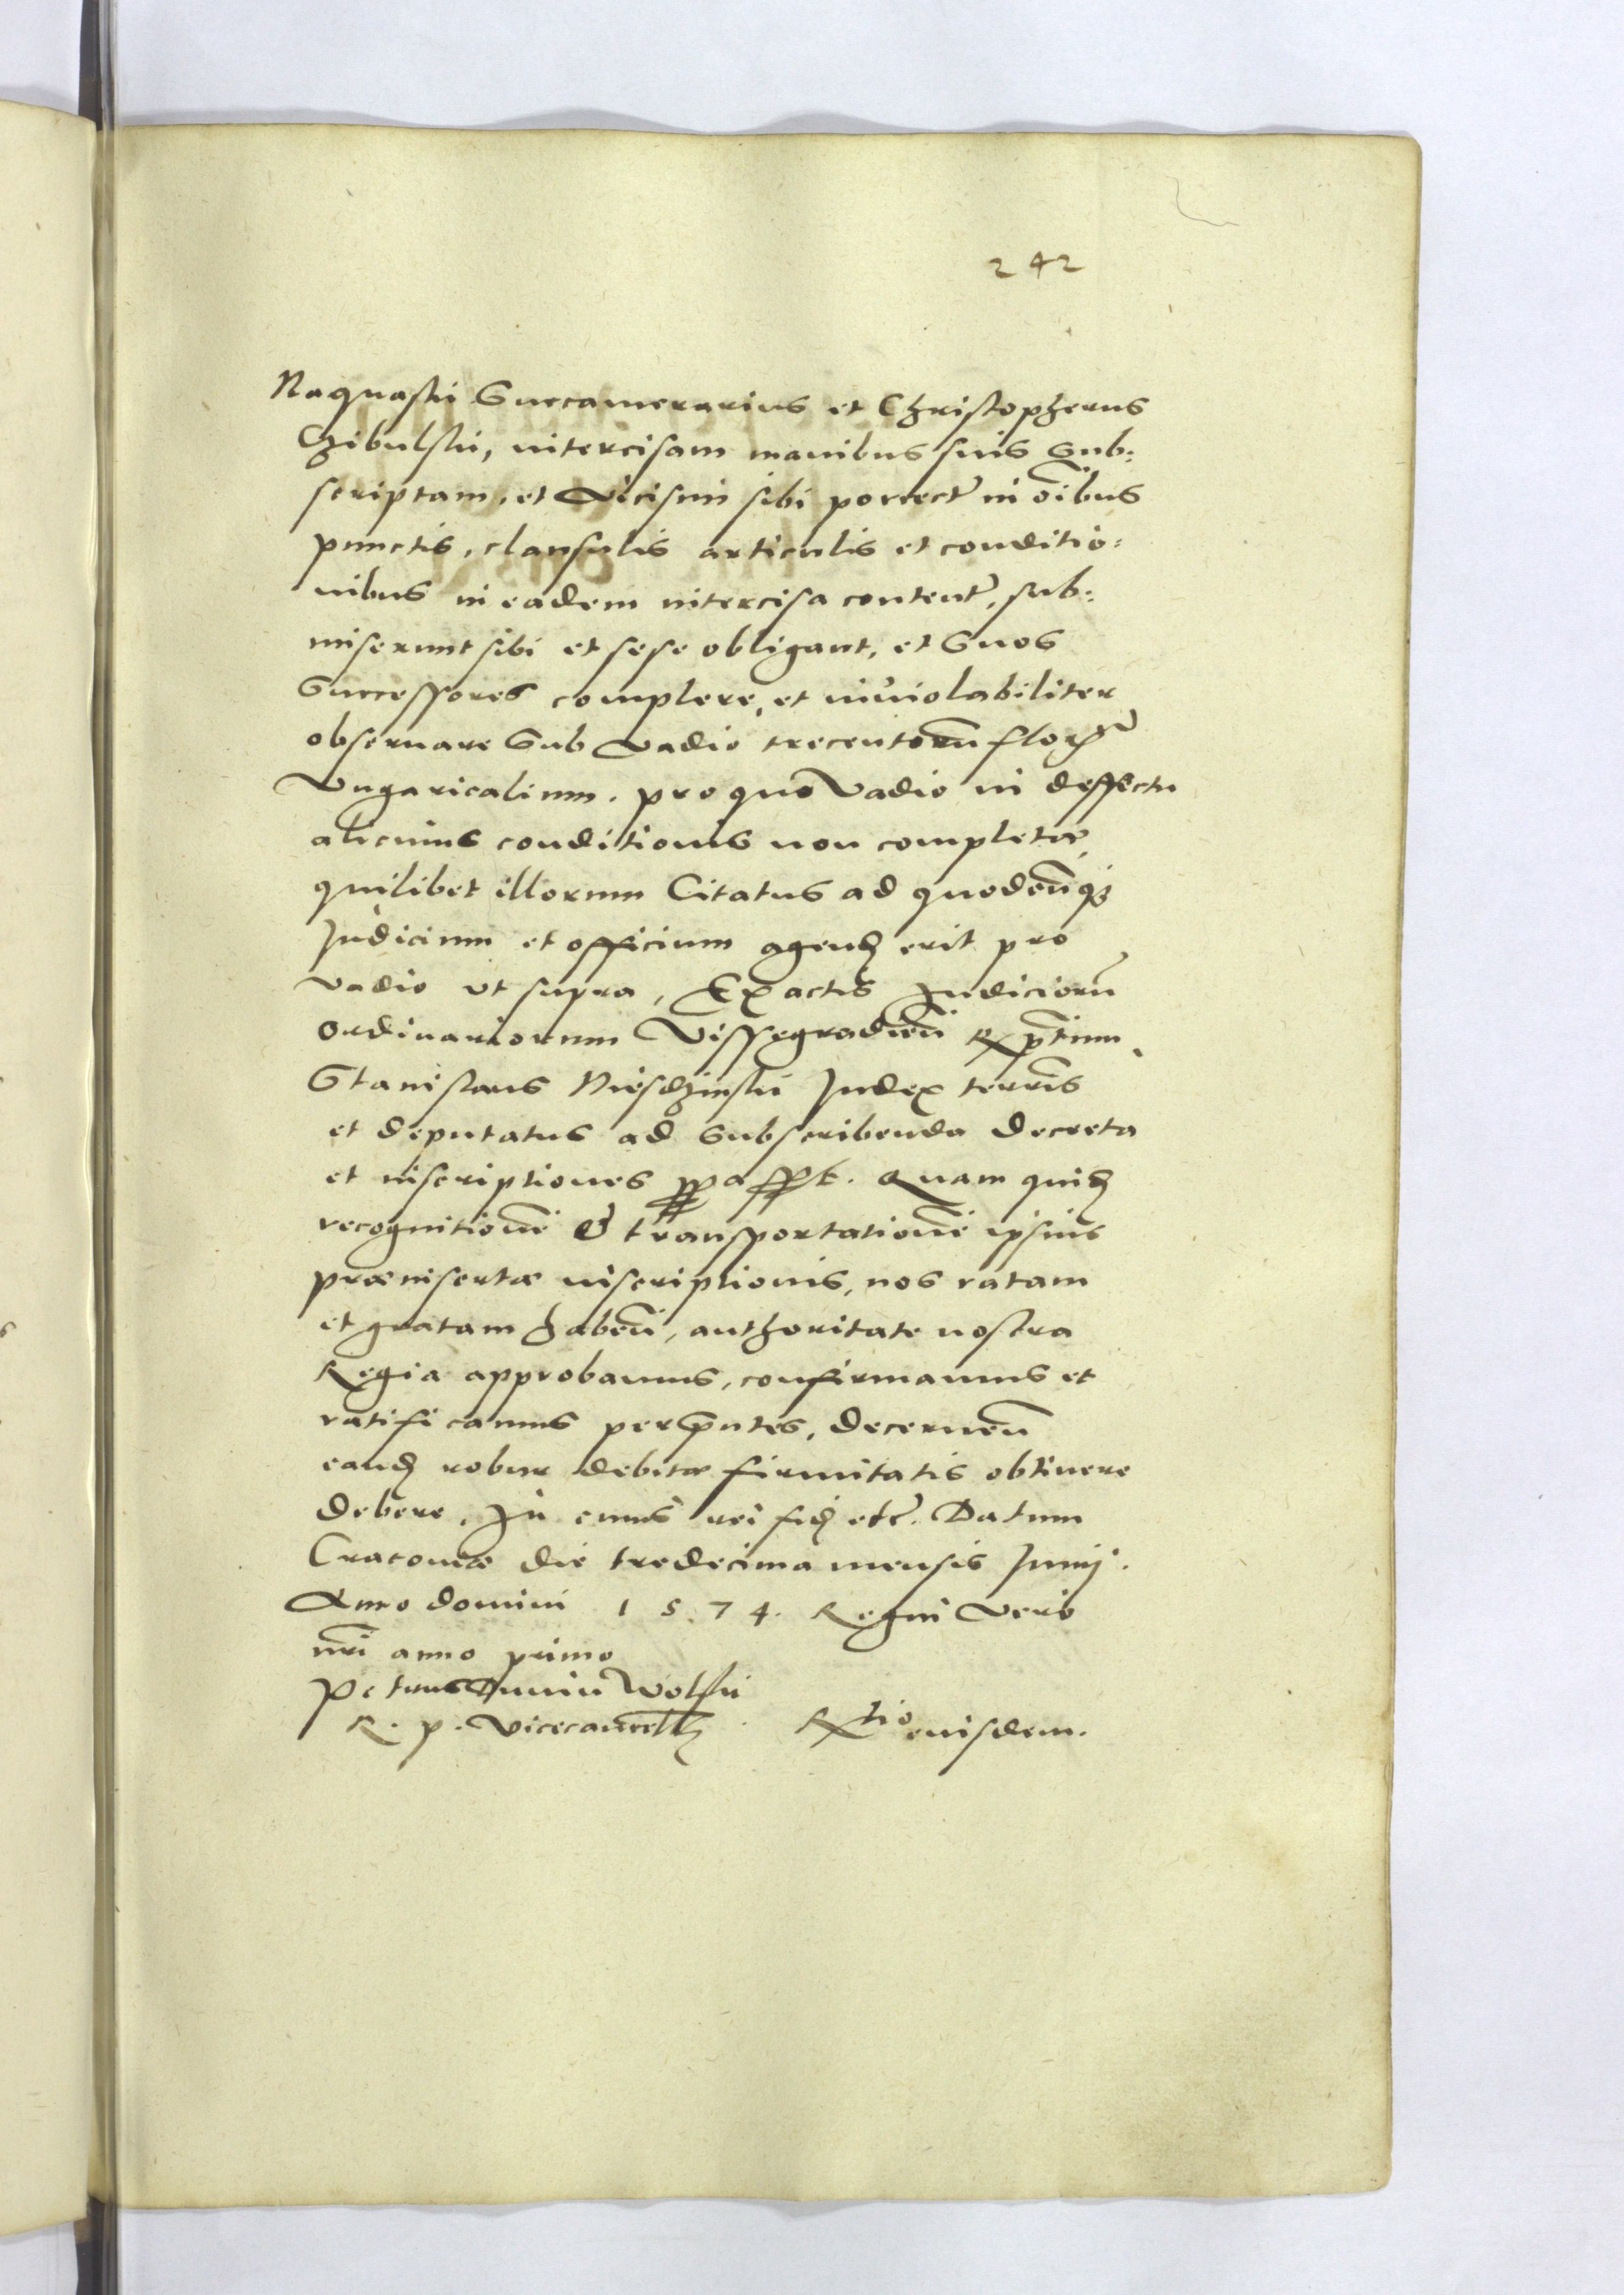 242
Naquaski Succamerarius et Christopherus
Czibulski, intercisam manibus suis sub:
scriptam, et vicissim sibi porrect̃ in oĩbus
punctis, clausulis articulis et conditio:
nibus in eadem intercisa content̃, sub:
miserunt sibi et sese obligant, et suos
Successores complere, et inuiolabiliter
obseruare sub vadio trecentorũ flor̃
Vngaricalium. pro quo vadio in deffectu
alicuius conditionis non completæ,
quilibet illorum Citatus ad quodcũq3
Judicium et officium agend erit pro
vadio vt supra, Ex actis Judiciorũ
ordinariorum Vissegradieñ
Stanislaus Judex terris̃
et deputatus ad subscribenda decreta
et inscriptiones Quam quid
recognitionẽ & transportationẽ ipsius
præinsertæ inscriptionis, nos ratam
et gratam habeñ, authoritate nostra
Regia approbamus, confirmamus et
ratificamus per p̃ntes, decerneñ
eand robur debitæ firmitatis obtinere
debere, In cuius rei fid etc̃. Datum
Cracouiæ die tredecima mensis Junij.
Anno domini 1574. Regni vero
nr̃i anno primo
Petrus Dunin Wolski
R. p. Vicecancell Rtio eiusdem.